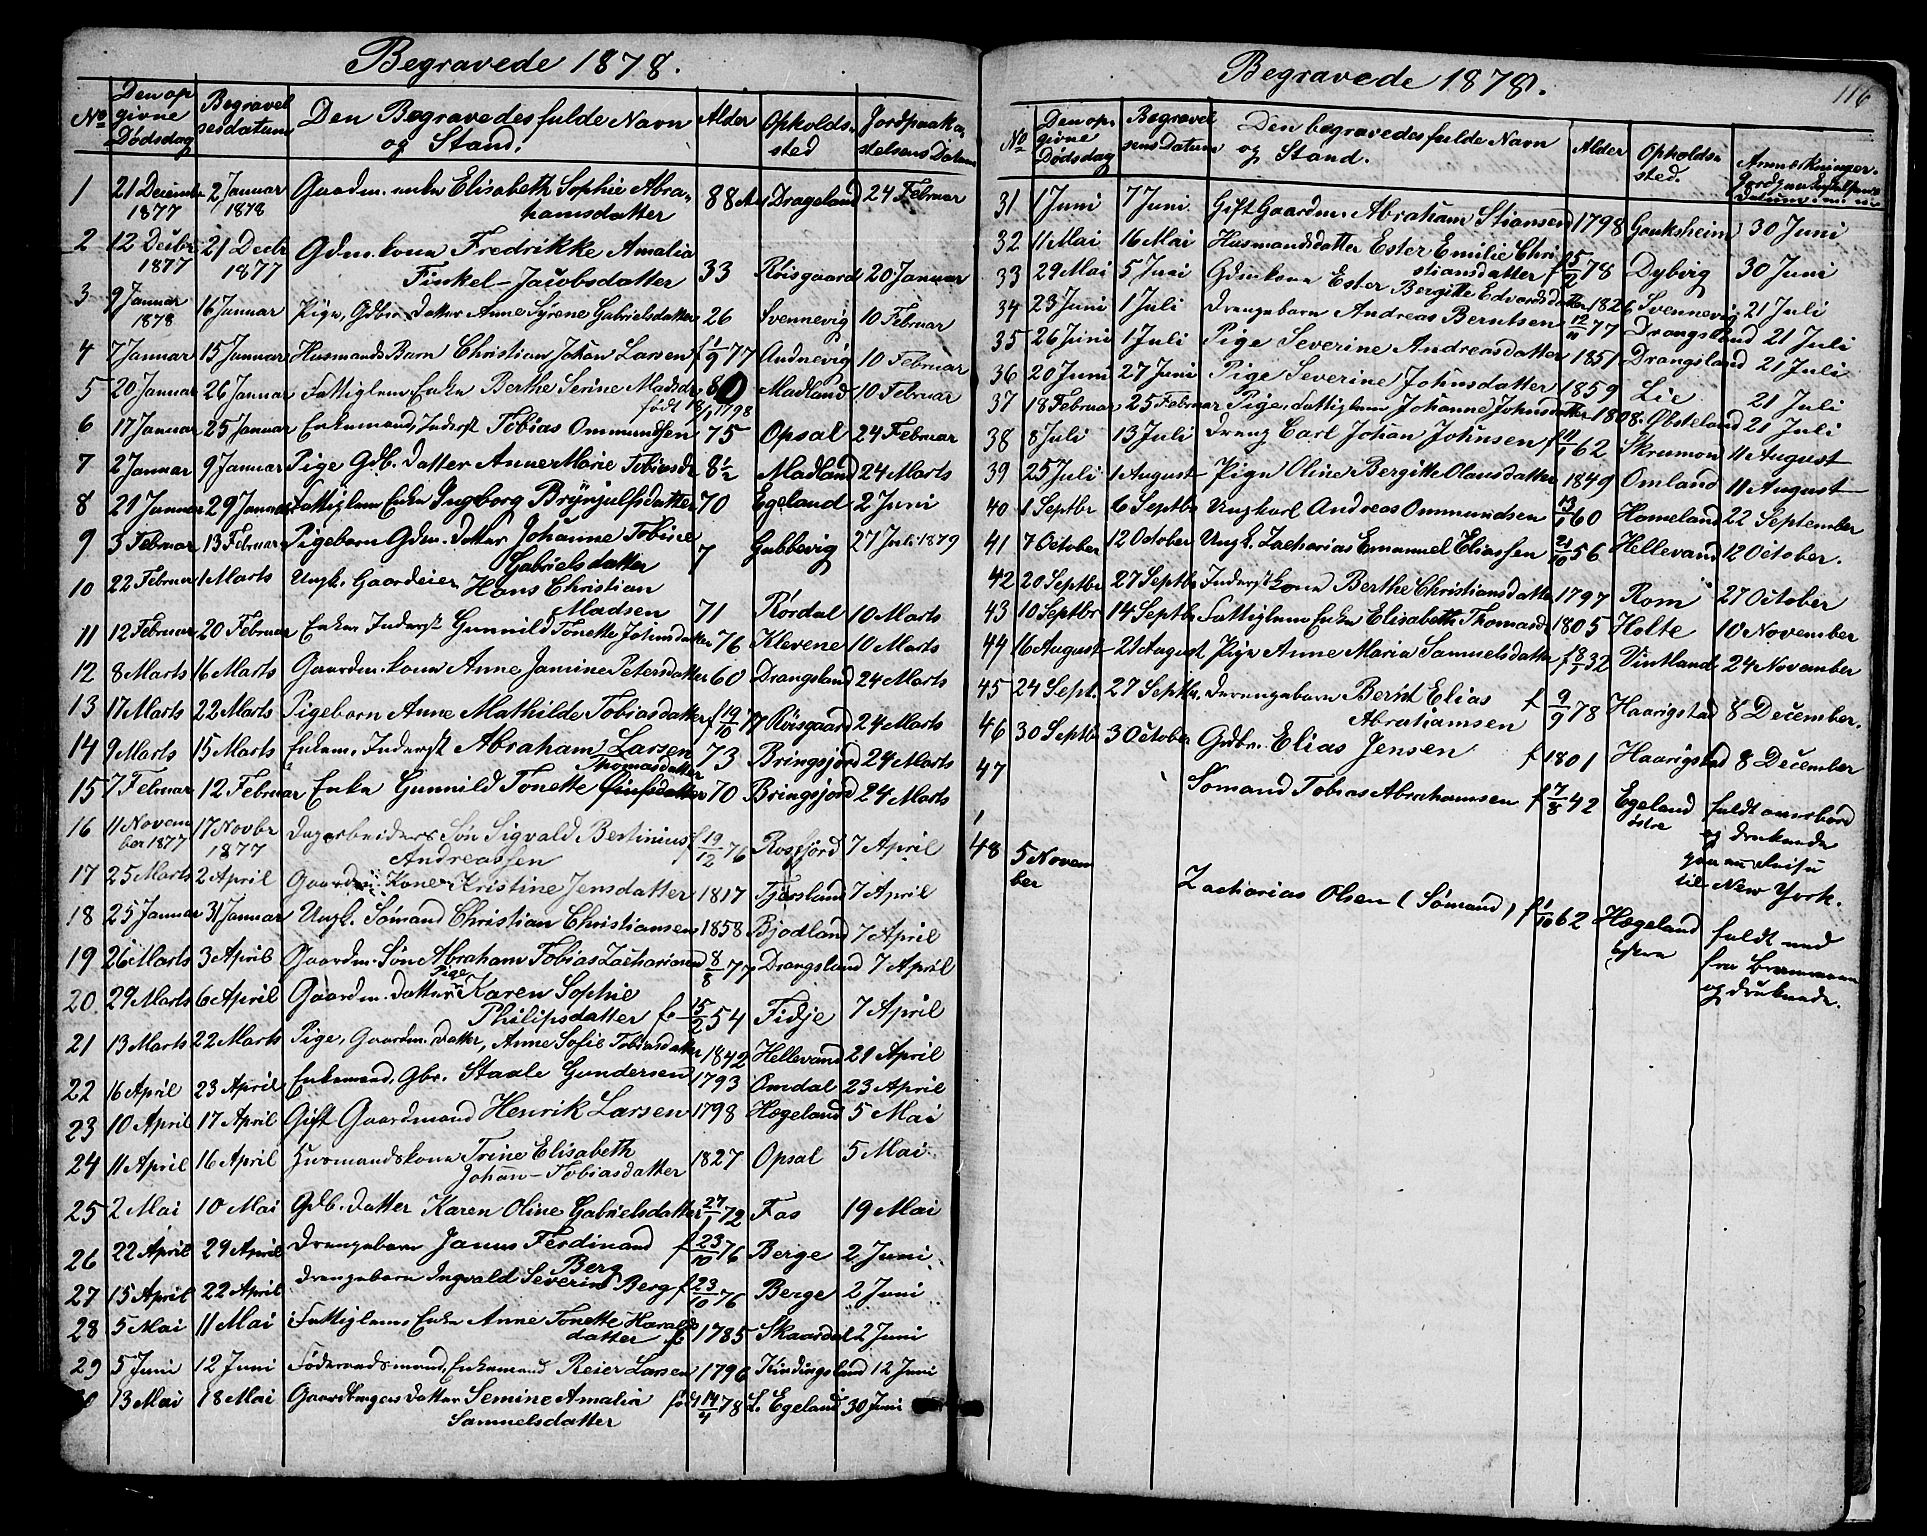 Begravede 1878.
No Den opgivne Dødsdag Begravelsesdatum Den Begravedes fulde Navn og Stand. Alder Opholdssted Jordpaakastelsens Datum
1 21 December 1877 2 Januar 1878 Gaardm. enke Elisabeth Sophie Abrahamsdatter 88 Aar Drageland 24 Februar
2 12 Decbr 1877 21 Decbr 1877 Gdm. kone Fredrikke Amalia Finkel-Jacobsdatter 33 Røisgaard 20 Januar
3 9 Januar 1878 16 Januar Pige, Gdbr. Datter Anne Syrene Gabrielsdatter 26 Svennevig 10 Februar
4 7 Januar 15 Januar Husmands Barn Christian Johan Larsen f 1/9 77 Audnevig 10 Februar
5 20 Januar 26 Januar Fattiglem Enke Berthe Serine Madsdr. 80 Madland 10 Februar
født 18/1 1798
6 17 Januar 25 Januar Enkemand, Inderst Tobias Ommundsen 75 Opsal 24 Februar
7 2 Januar 9 Januar Pige Gdb. Datter Anne Marie Tobiasdr 8½ Madland 24 Marts
8 21 Januar 29 Januar Fattiglem Enke Ingborg Brynjulfsdatter 70 Egeland 2 Juni
9 5 Februar 13 Februar Pigebarn Gdm. Datter Johanne Tobine Gabrielsdatter 7 Gabbevig 27 Juli 1879
10 22 Februar 1 Marts Ungk. Gaardeier Hans Christian Madsen 71 Rørdal 10 Marts
11 12 Februar 20 Februar Enke Inderst Gunnild Tonette Johnsdatter 76 Klevene 10 Marts
12 8 Marts 16 Marts Gaardm. kone Anne Jamine Petersdatter 60 Drangsland 24 Marts
13 17 Marts 22 Marts Pigebarn Anne Mathilde Tobiasdatter f 19/10 77 Røisgaard 24 Marts
14 9 Marts 15 Marts Enkem. Inderst Abraham Larsen 73 Bringsjord 24 Marts
Thomasdatter
15 7 Februar 12 Februar Enke Gunnild Tonette 70 Bringsjord 24 Marts
16 11 November 1877 17 Novbr 1877 Dagarbeiders Søn Sigvald Bertinius Andreassen f 19/12 76 Rosfjord 7 April
17 25 Marts 2 April Gaardm. Kone Kristine Jensdatter 1817 Tjørsland 7 April
18 25 Januar 31 Januar Ungk. Sømand Christian Christiansen 1858 Bjodland 7 April
19 26 Marts 3 April Gaardm. Søn Abraham Tobias Zachariasen 8/8 77 Drangsland 7 April
20 29 Marts 6 April Gaardm. Datter Pige Karen Sophie Philipsdatter f 15/2 54 Fidje 7 April
21 13 Marts 22 Marts Pige, Gaardm. Datter, Anne Sofie Tobiasdatter 1842 Hellevand 21 April
22 16 April 23 April Enkemand, Gbr. Staale Gundersen 1793 Omdal 23 April
23 10 April 17 April Gift Gaardmand Henrik Larsen 1798 Hægeland 5 Mai
24 11 April 16 April Husmandskone Trine Elisabeth Johan-Tobiasdatter 1827 Opsal 5 Mai
25 2 Mai 10 Mai Gdb. Datter Karen Oline Gabrielsdatter 27/1 72 Fas 19 Mai
26 22 April 29 April Drengebarn Janus Ferdinand Berg f 23/10 76 Berge 2 Juni
27 15 April 22 April Drengebarn Ingvald Severin Berg f 23/10 76 Berge 2 Juni
28 5 Mai 11 Mai Fattiglems Enke Anne Tonette Haraldsdatter f 1785 Skaardal 2 Juni
29 5 Juni 12 Juni Føderaadsmand, Enkemand Reier Larsen 1796 Kindingsland 12 Juni
13 Mai 18 Mai Gaardbrugers Datter Semine Amalia Samuelsdatter født 14/4 78 L. Egeland 30 Juni
Begravede 1878. 116
No Den opgivne Dødsdag Begravelsens Datum Den begravedes fulde Navn og Stand. Alder Opholdssted. Anmerkninger. Jordpaakastelsens Datum
31 1 Juni 7 Juni Gift Gaardm. Abraham Stiansen 1798 Gauksheim 30 Juni
32 11 Mai 16 Mai Husmandsdatter Ester Emilie Christiansdatter f 5/2 78 Dybvig 30 Juni
33 29 Mai 5 Juni Gdm kone Ester Bergitte Edvardsdatter 1826 Svennevig 21 Juli
34 23 Juni 1 Juli Drengebarn Andreas Berntsen 12/11 77 Drangsland 21 Juli
35 26 Juni 1 Juli Pige Severine Andreasdatter 1851 Drangsland 21 Juli
36 20 Juni 27 Juni Pige Severine Johnsdatter 1859 Lie 21 Juli
37 18 Februar 25 Februar Pige, fattiglem Johanne Johnsdatter 1808. Øksteland 21 Juli
38 8 Juli 13 Juli Dreng Carl Johan Johnsen f 11/1 62 Skrumon 11 August
39 25 Juli 1 August Pige Oline Bergitte Olausdatter 1849 Omland 11 August
40 1 Septbr 6 Septbr Ungkarl Andreas Ommundsen 13/1 60 Homeland 22 September
41 7 October 12 October Ungk. Zacharias Emanuel Eliassen 21/10 56 Hellevand 12 October.
42 20 Septbr 27 Septbr Inderst kone Berthe Christiansdatter 1797 Rom 27 October
43 10 Septbr 14 Septbr Fattiglem Enke Elisabeth Thomasd. 1805 Holte 10 November
44 16 August 21 August Pige Anne Maria Samuelsdatter f 18/7 32 Vintland 24 November
45 24 Sept. 27 Septbr. Drengebarn Bernt Elias Abrahamsen f 9/9 78 Haarigstad 8 December.
46 30 Septbr 3 October Gdbr. Elias Jensen f 1801 Haarigstad 8 December
47 Sømand Tobias Abrahamsen f 7/8 42 Egeland østre faldt overbord og druknede paa en Reise til New York.
48 5 November Zacharias Olsen (Sømand) f 1/10 62 Hægeland faldt ned fra Bramraaen og druknede.